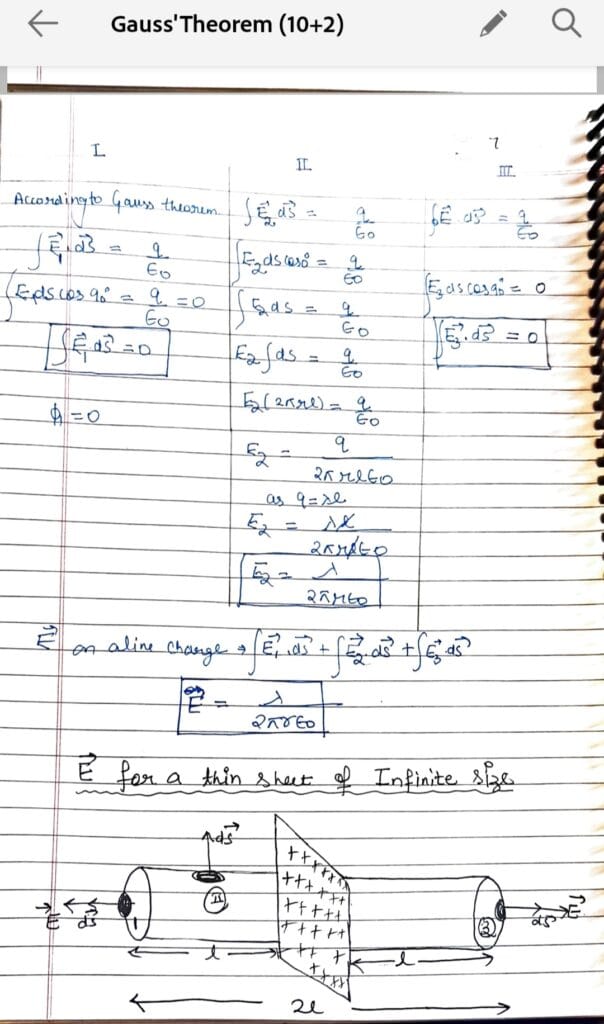 Gauss'Theorem (10+2)
7
I
According to Gauss theorem
∫E₁⃗.ds⃗ = q/Eo
∫E₁ds cos 90° = q/Eo = 0
∫E₁⃗.ds⃗ = 0
ϕ = 0
II
∫E₂⃗ ds⃗ = q/Eo
∫E₂ds cos0° = q/Eo
∫E₂ds = q/Eo
E₂∫ds = q/Eo
E₂(2πrl) = q/Eo
E₂ = q/2πrlEo
as q=λl
E₂ = λl/2πrlEo
E₂ = λ/2πrEo
III
∫E⃗ ds⃗ = q/Eo
∫E₃ds cos90° = 0
∫E₃⃗.ds⃗ = 0
E⃗ on a line charge → ∫E₁⃗.ds⃗ + ∫E₂⃗.ds⃗ + ∫E₃⃗ ds⃗
E⃗ = λ/2πrEo
E⃗ for a thin sheet of Infinite size
ds⃗
+++++++
+++++++
++++++
++++++
++ + +
++++
E⃗ ds⃗ 1 II 3 ds⃗ E⃗
l l
2l